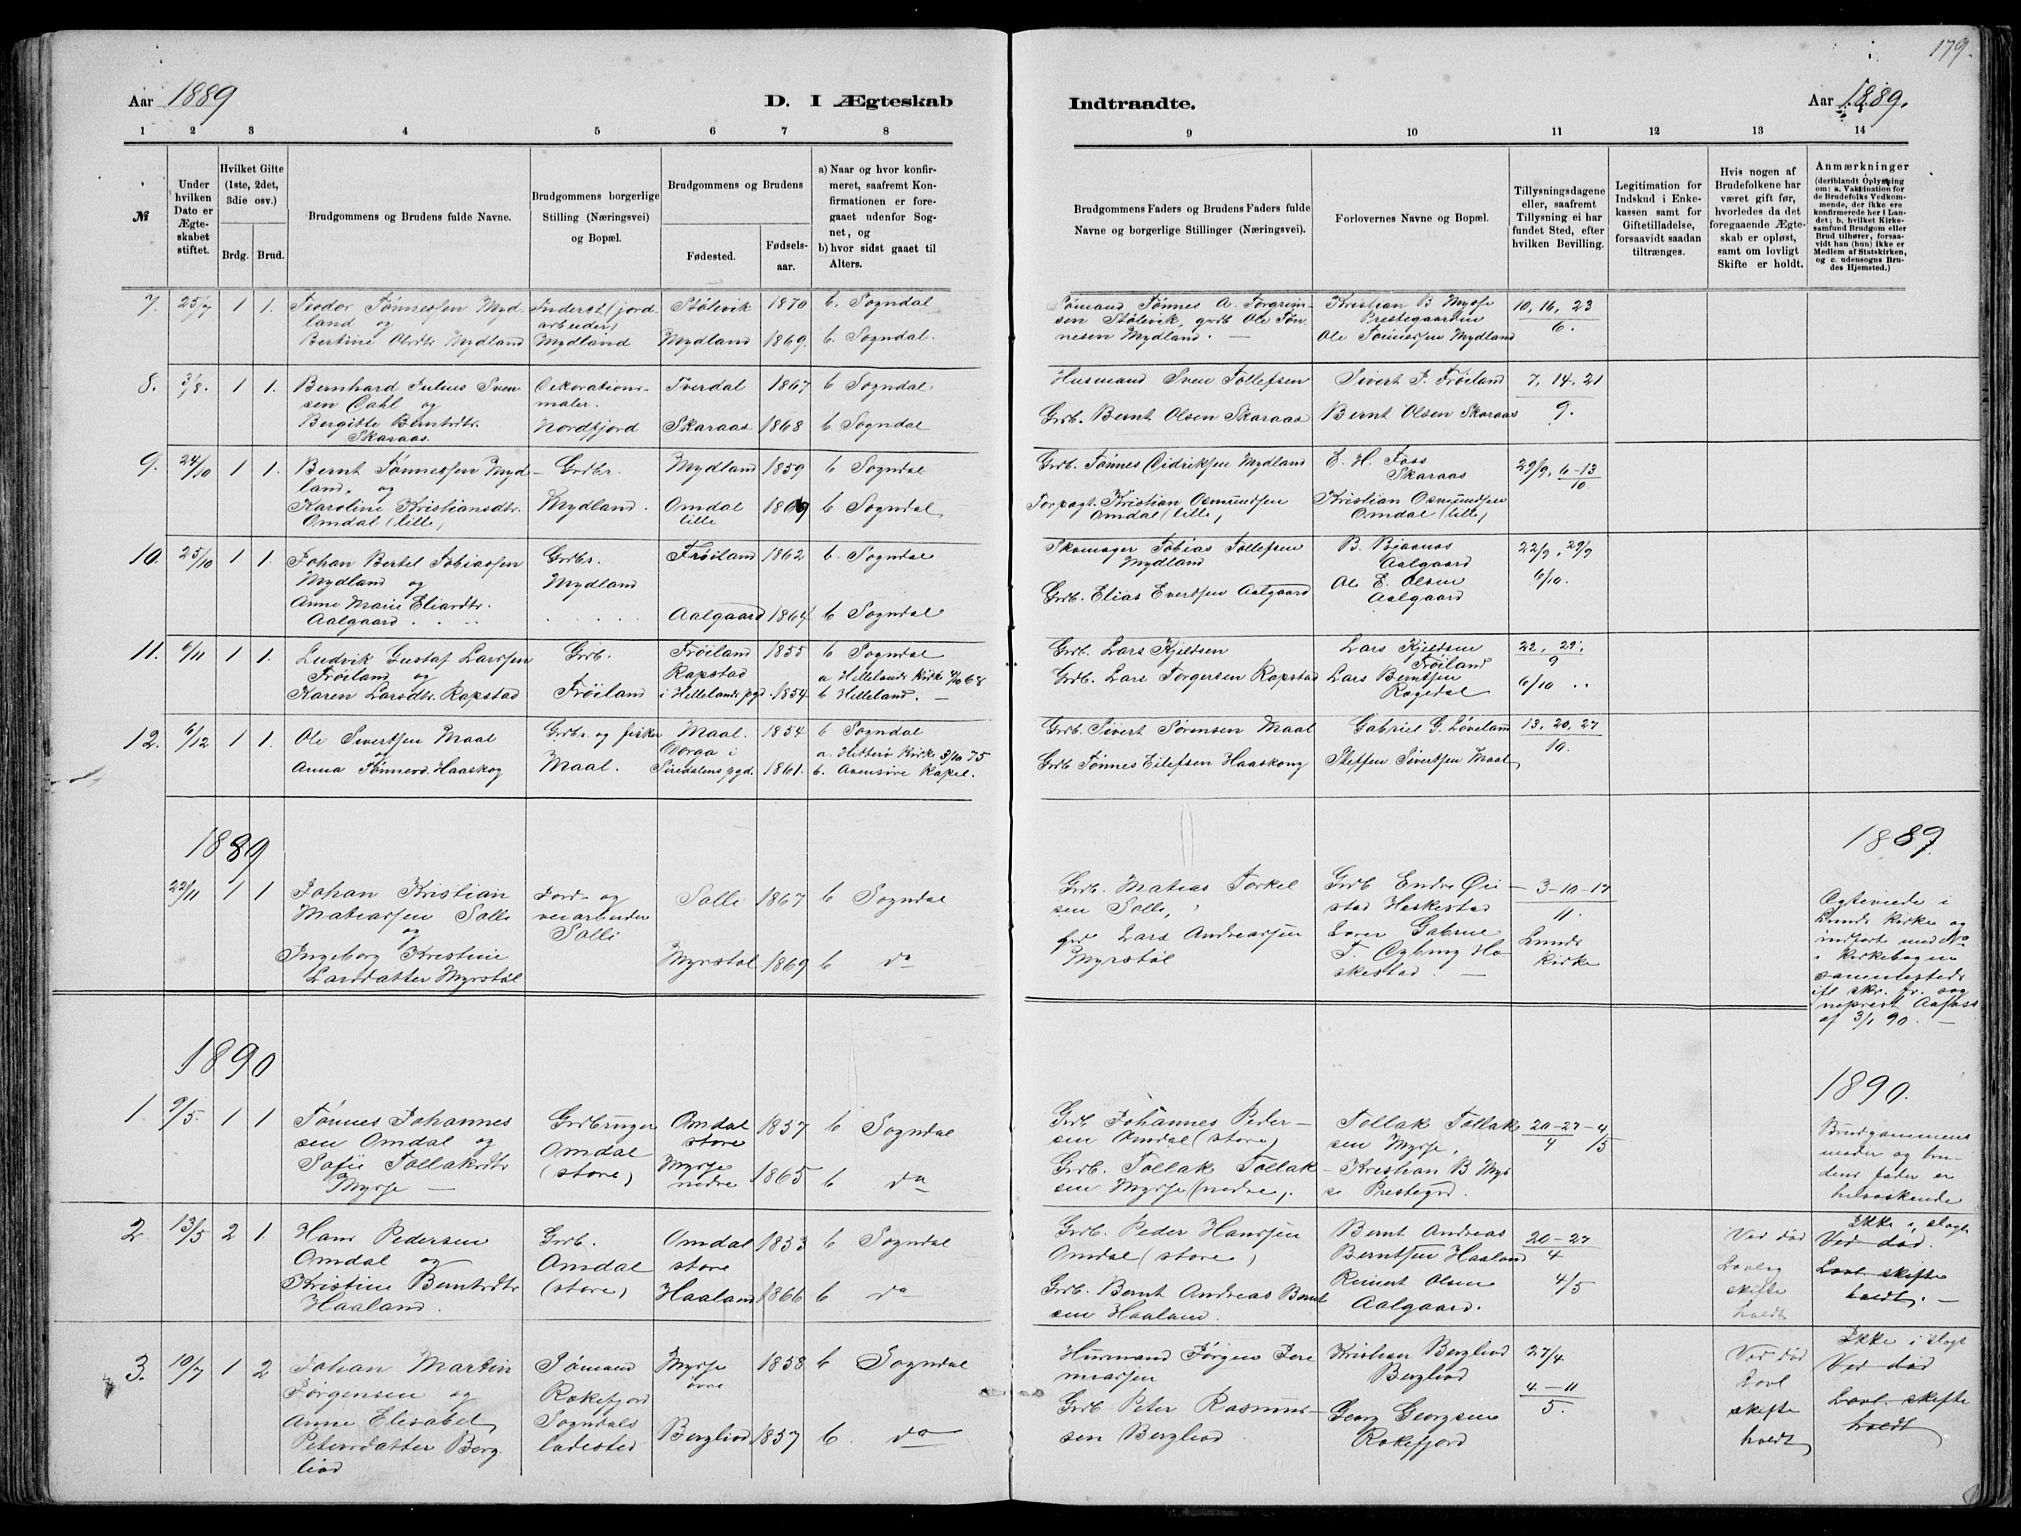 179.
Aar 1889
D. I Ægteskab
Indtraadte.
Aar 1889.
1 2 3 4 5 6 7 8
9 10 11 12 13 14
№
Under hvilken Dato er Ægteskabet stiftet.
Hvilket Gifte (1ste, 2det, 3die osv.)
Brdg. Brud.
Brudgommens og Brudens fulde Navne.
Brudgommens borgerlige Stilling (Næringsvei) og Bopæl.
Brudgommens og Brudens
Fødested.
Fødselsaar.
a) Naar og hvor konfirmeret, saafremt Konfirmationen er foregaaet udenfor Sognet, og
b) hvor sidst gaaet til Alters.
Brudgommens Faders og Brudens Faders fulde Navne og borgerlige Stillinger (Næringsvei).
Forlovernes Navne og Bopæl.
Tillysningsdagene eller, saafremt Tillysning ei har fundet Sted, efter hvilken Bevilling.
Legitimation for Indskud i Enkekassen samt for Giftetilladelse, forsaavidt saadan tiltrænges.
Hvis nogen af Brudefolkene har været gift før, hvorledes da det foregaaende Ægteskab er opløst, samt om lovligt Skifte er holdt.
Anmærkninger
(deriblandt Oplysning om: a. Vaksination for Brudefolks Vedkommende, der ikke ere konfirmerede her i Landet; b. hvilket Kirkesamfund Brudgom eller Brud tilhører, forsaavidt han (hun) ikke er Medlem af Statskirken, og c. udensogns Brudes Hjemsted.)
7. 25/7 1 1. Teodor Tønnessen Mydland og
Bertine Olsdtr Mydland
Inderst (jordarbeider) Mydland
Stølevik 1870 b. Sogndal
Mydland 1869. b. Sogndal.
Sømand Tønnes A. Torgrimsen Stølevik, grdb Ole Tønnesen Mydland. —
Kristian B Mysse Prestegaarden
Ole Tønnessen Mydland
10, 16, 23
6.
8. 3/8. 1 1. Bernhard Julius Svensen Dahl og
Bergitte Berntdtr. Skaraas.
Dekorationsmaler. Nordfjord
Tverdal 1867 b Sogndal.
Skaraas 1868 b Sogndal
Husmand Sven Tollefsen
Grdb. Bernt Olsen Skaraas
Sivert T. Frøiland
Bernt Olsen Skaraas
7, 14, 21
9.
9. 24/10 1 1. Bernt Tønnessen Mydland, og
Karoline Kristiansdtr. Omdal (lille)
Grdbr. Mydland.
Mydland 1859 b Sogndal
Omdal lille 1869 b Sogndal
Grdb. Tønnes Didriksen Mydland
Forpagt. Kristian Osmundsen Omdal (lille)
E. H. Foss Skaraas
Kristian Osmundsen Omdal (lille)
29/9, 6-13
10.
10. 25/10 1 1. Johan Bertel Tobiassen Mydland og
Anne Marie Eliasdtr. Aalgaard
Grdbr. Mydland
Frøiland 1862 b. Sogndal
Aalgaard 1864 b Sogndal
Skomager Tobias Tollefsen Mydland
Grdb. Elias Evertsen Aalgaard
B. Bjaanes Aalgaard
Ol E. Olsen Aalgaard
22/9, 29/9
6/10.
11. 6/11 1 1. Ludvik Gustaf Larssen Frøiland og
Karen Larsdtr. Rapstad
Grdb. Frøiland
Frøiland 1855 b Sogndal
Rapstad i Hellelands pgd. 1854. a Hellelands Kirk 4/10 68
b Helleland. —
Grdb. Lars Kjeldsen
Grdb. Lars Torgersen Rapstad
Lars Kjeldsen Frøiland
Lars Berntsen Rægedal
22, 29,
9
6/10
12. 6/12 1 1. Ole Sivertsen Maal og
Anna Tønnesd. Haaskog
Grdbr og fisker Maal.
Maal. 1854 b Sogndal
i Siredalens pgd. 1861. a. Hitterø Kirke 3/10 75
b. Aaensire Kapel.
Grdb Sivert Sørensen Maal
Grdb Tønnes Eilefsen Haaskong
Gabriel G. Løveland
Steffen Sivertsen Maal
13, 20, 27
10.
1889
1889.
22/11 1 1 Johan Kristian Matiassen Solli og
Ingeborg Kristine Larsdatter Myrstøl
Jord- og veiarbeider Solli
Solli 1867 b Sogndal
Myrstøl 1869 b do
Grdb. Matias Torkelsen Solli,
Lars Andreassen Myrstøl
Grdb Endre Øistad Heskestad
Gabriel T. Eybring Heskestad. —
3-10-17
11.
Lunds Kirke
Ægteviede i Lunds Kirke og indført med No i Kirkebogen sammesteds ifl skr. fr. sognepræst Aafoss af 3/1 90. —
1890
1890.
1. 9/5. 1 1 Tønnes Johannessen Omdal og
Sofie Tollaksdtr Mysse —
Grdbruger Omdal (store)
Omdal store 1857 b Sogndal
Mysse nedre 1865 b do
Grdb Johannes Pedersen Omdal (store)
Grdb. Tollak Tollaksen Mysse (nedre).
Tollak Tollaksen Mysse,
Kristian B Mysse Prestegrd.
20-27-4
4 /5
Brudgommens moder og brudens fader er helsøskende
2 13/5 2 1. Hans Pedersen Omdal og
Kristine Berntsdtr Haaland.
Grdb. Omdal (store)
Omdal store 1833 b Sogndal
Haaland 1866 b do
Grdb. Peder Hanssen Omdal (store)
Grdb. Bernt Andreas Berntsen Haaland.
Bernt Andreas Berntsen Haaland
Reinert Olsen Aalgaard.
20-27
4
4/5
Ved død
Lovlig skifte holdt
Ikke i slægt
Ved død.
Lovl skifte holdt. —
3. 10/7 1 2 Johan Martin Jørgensen og
Anne Elisabet Petersdatter Bergliod
Sømand Rekefjord Sogndals ladested
Mysse øvre 1858 b Sogndal
Bergliod 1857 b. do
Husmand Jørgen Jeremiassen
Grdb Peter Rasmussen Bergliod
Kristian Bergliod Bergliod
Georg Georgsen Rekefjord
27/4
4-11
5.
Ved død
Lovl skifte holdt
Ikke i slægt
Ved død
Lovl. skifte holdt